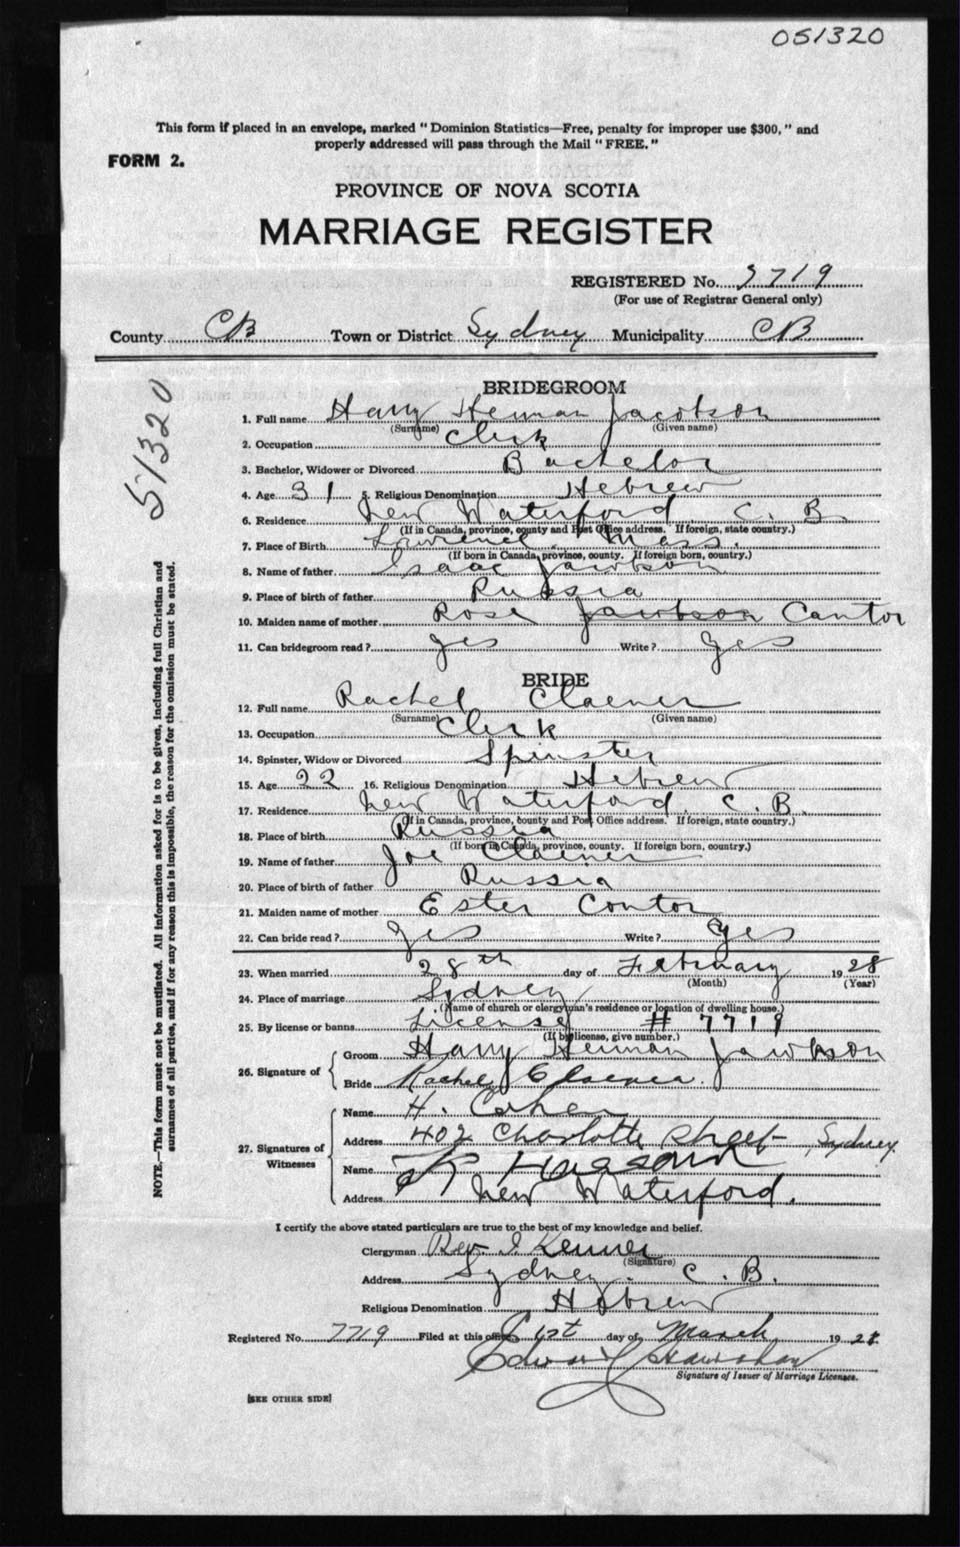 051320
This form if placed in an envelope, marked "Dominion Statistics—Free, penalty for improper use $300," and
properly addressed will pass through the Mail "FREE."
FORM 2.
PROVINCE OF NOVA SCOTIA
MARRIAGE REGISTER
REGISTERED No. 7719
(For use of Registrar General only)
County CB Town or District Sydney Municipality CB
51320
NOTE.—This form must not be mutilated. All information asked for is to be given, including full Christian and
surnames of all parties, and if for any reason this is impossible, the reason for the omission must be stated.
BRIDEGROOM
1. Full name Harry Heiman Jacobson
(Surname) (Given name)
2. Occupation Clerk
3. Bachelor, Widower or Divorced Bachelor
4. Age 31 5. Religious Denomination Hebrew
6. Residence New Waterford C. B.
(If in Canada, province, county and Post Office address. If foreign, state country.)
7. Place of Birth Lawrence Mass.
(If born in Canada, province, county. If foreign born, country.)
8. Name of father Isaac Jacobson
9. Place of birth of father Russia
10. Maiden name of mother Rose Jacobson Cantor
11. Can bridegroom read? Yes Write? Yes
BRIDE
12. Full name Rachel Claener
(Surname) (Given name)
13. Occupation Clerk
14. Spinster, Widow or Divorced Spinster
15. Age 22 16. Religious Denomination Hebrew
17. Residence New Waterford. C. B.
(If in Canada, province, county and Post Office address. If foreign, state country.)
18. Place of birth Russia
(If born in Canada, province, county. If foreign born, country.)
19. Name of father Joe Claener
20. Place of birth of father Russia
21. Maiden name of mother Ester Contor
22. Can bride read? Yes Write? Yes
23. When married 28th day of February 1928
(Month) (Year)
24. Place of marriage Sydney
(Name of church or clergyman's residence or location of dwelling house.)
25. By license or banns License # 7719
(If by license, give number.)
26. Signature of
Groom Harry Heiman Jacobson
Bride Rachel Claener.
27. Signatures of Witnesses
Name H. Cohen
Address 402 Charlotte Street Sydney
Name
Address New Waterford.
I certify the above stated particulars are true to the best of my knowledge and belief.
Clergyman Rev. I Kenner
(Signature)
Address Sydney. C. B.
Religious Denomination Hebrew
Registered No. 7719 Filed at this office 1st day of March 1928
Edward
Signature of Issuer of Marriage Licenses.
[SEE OTHER SIDE]